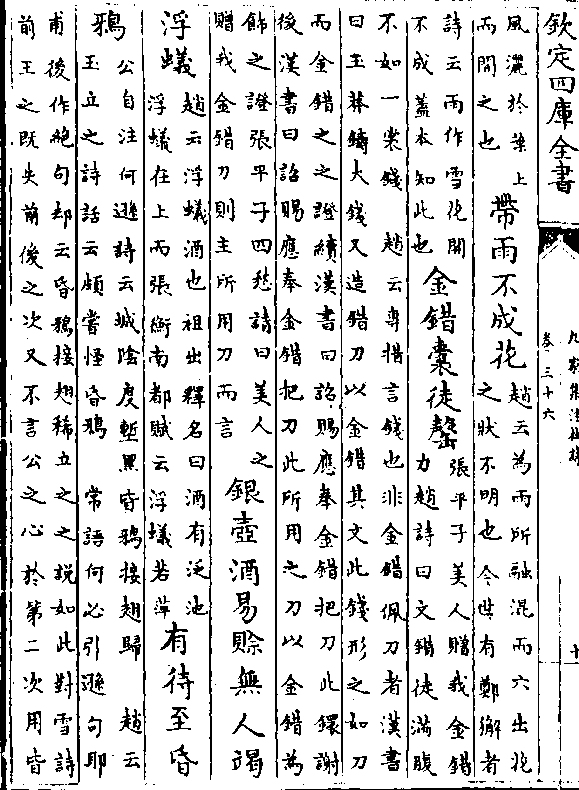 欽定四庫全書
卷三十六
十
風灑於葉上
而聞之也
帶雨不成花
趙云為雨所融混而六出花
之狀不明也今世有鄭獬者
詩云雨作雪花開
不成蓋本知此也
金錯囊徒罄
張平子美人贈我金錯
力趙詩曰文錯徒滿腹
不如一囊錢 趙云専指言錢也非金錯佩刀者漢書
曰王莽鑄大錢又造錯刀以金錯其文此錢形之如刀
而金錯之之證續漢書曰詔賜應奉金錯把刀此鐶謝
後漢書曰詔賜應奉金錯把刀此所用之刀以金錯為
飾之證張平子四愁詩曰美人之
贈我金錯刀則主所用刀而言
銀壺酒易賒無人竭
浮蟻
趙云浮蟻酒也祖出釋名曰酒有泛池
浮蟻在上而張衡南都賦云浮蟻若萍
有待至昏
鴉
公自注何遜詩云城陰度塹黑昏鴉接翅歸 趙云
玉立之詩話云頗嘗怪昏鴉 常語何必引遜句耶
甫後作絶句却云昏鴉接翅稀立之之説如此對雪詩
前王之既失前後之次又不言公之心於第二次用昏